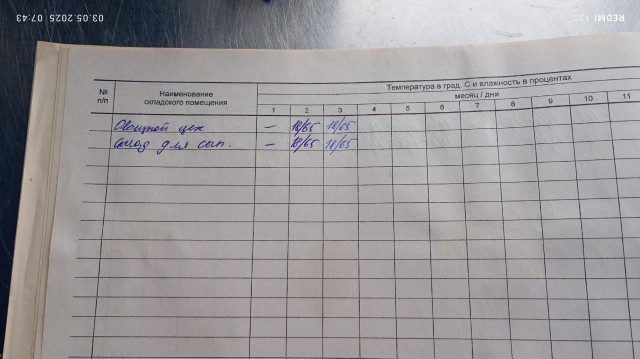 REDMI 13C
03.05.2025 07:43
№ п/п
Наименование складского помещения
Температура в град. С и влажность в процентах
месяц / дни
1 2 3 4 5 6 7 8 9 10 11
Овощной цех — 18/65 18/65
Склад для сып. — 18/65 18/65